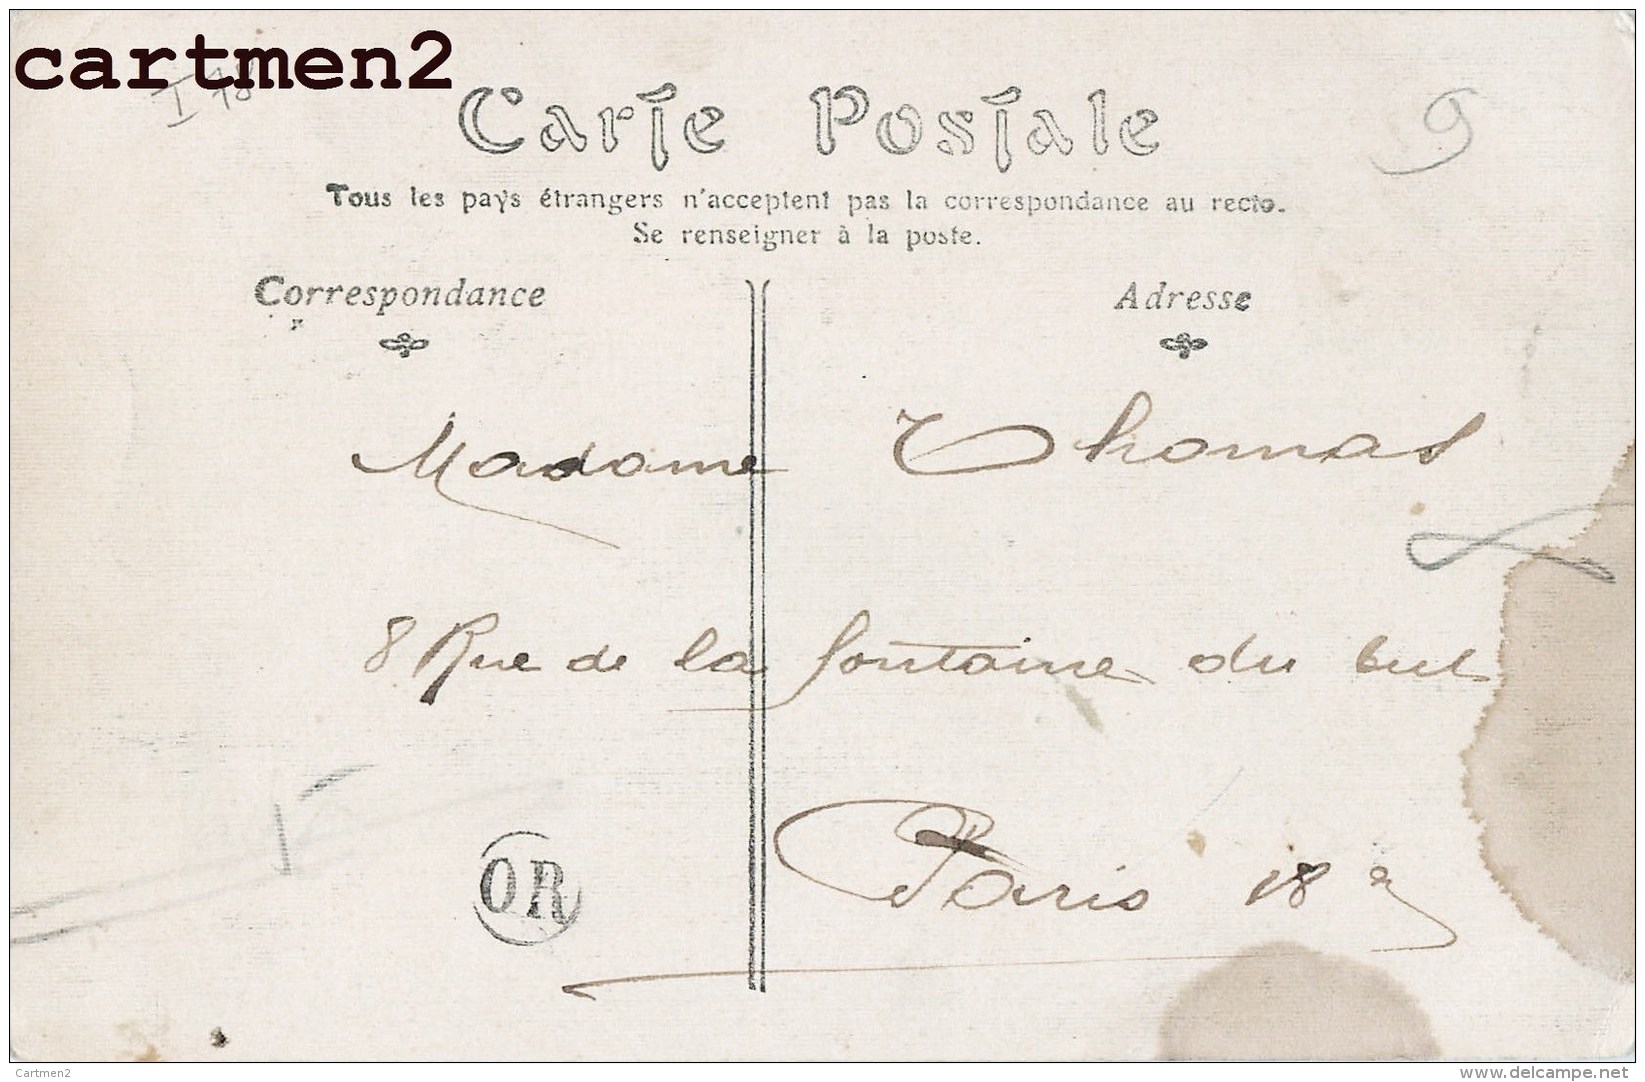 cartmen2
I 18
Carte Postale
9
Tous les pays étrangers n'acceptent pas la correspondance au recto.
Se renseigner à la poste.
Correspondance
Adresse
Madame Thomas
8 Rue de la fontaine du but
OR
Paris 18e
Cartmen2
www.delcampe.net